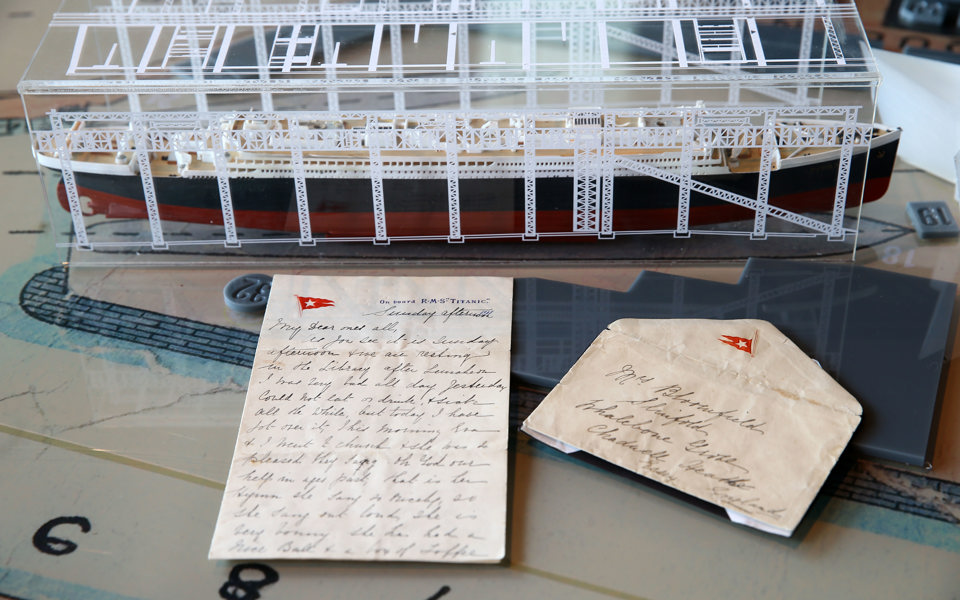 On board R·M·S "TITANIC."
Sunday afternoon
My Dear ones all,
as you see it is Sunday
afternoon & we are resting
in the Library after Luncheon
I was very bad all day Yesterday
Could not eat or drink, & sick
all the while, but today I have
got over it, this morning Eva
& I went to church & she was so
pleased they sang Oh God our
help in ages past, that is her
hymn she sang so nicely, so
she sang out loud she is
very bonny she has had a
nice Ball & a box of Toffee
Mrs Bloomfield
Whalebone Grove
Chadwell Heath
Essex England
61
6
8